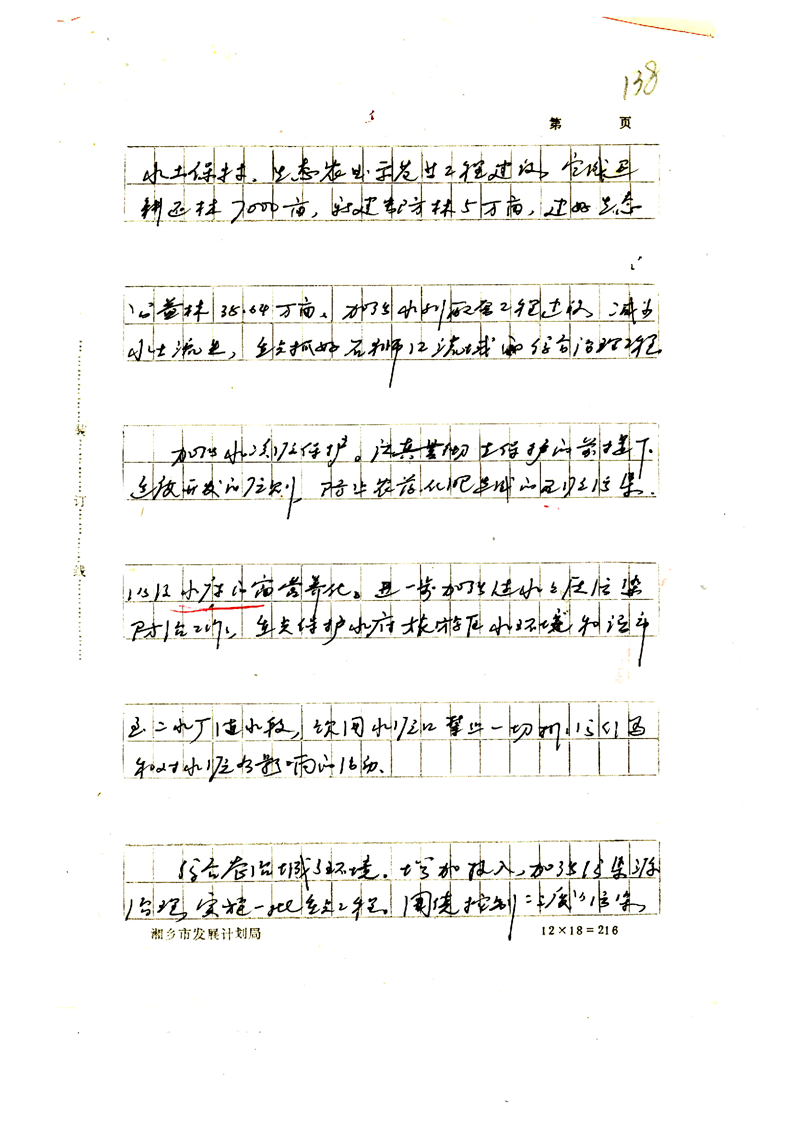 138
第 页
水土保持、生态农业示范等工程建设，完成退
耕还林7000亩，新建配方林5万亩，建好生态
公益林38.64万亩。加强水利配套工程建设，减少
水土流失，重点抓好石狮江流域的综合治理工程
加强水源保护。认真贯彻在保护的前提下
适度开发的原则，防止农药化肥造成的面源污染，
水库的富营养化。进一步加强进水上质污染
防治工作，重点保护水府旅游区水环境和
至二水厂进水段，饮用水源口禁止一切
和对水源有影响的活动。
综合整治城乡环境。增加投入，加强污染源
治理，实施一批重点工程。围绕控制污染，
装订线
湘乡市发展计划局
12×18=216